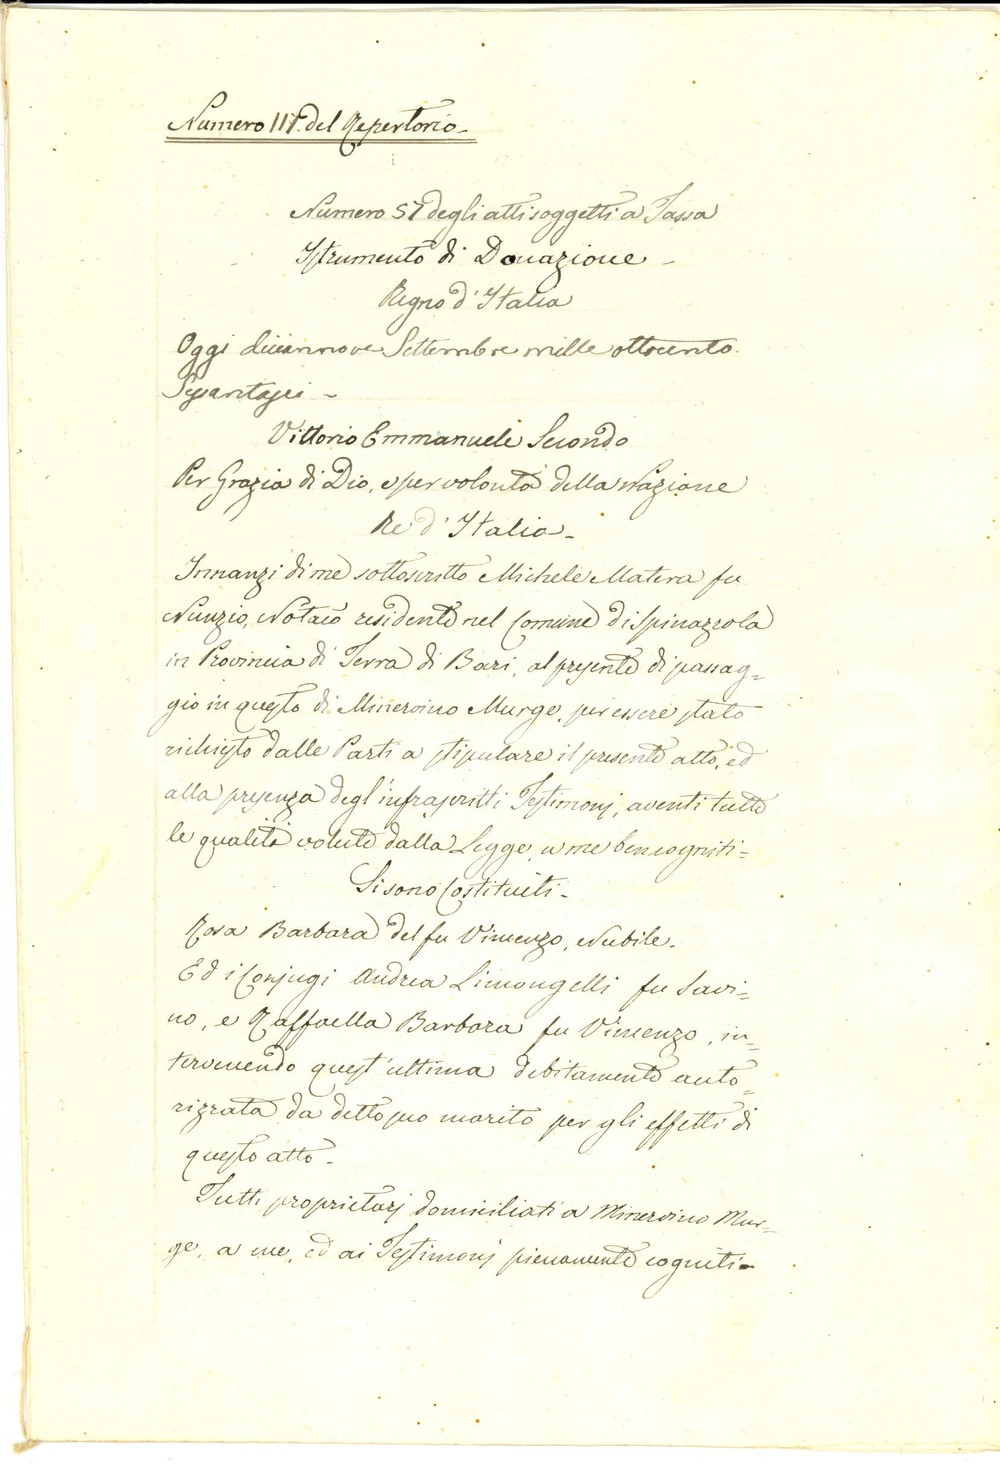 Numero 117. del Repertorio_
Numero 57 degli atti soggetti a Tassa
Istrumento di Donazione _
Regno d'Italia
Oggi diciannove Settembre mille ottocento
Sessantasei _
Vittorio Emmanuele Secondo
Per Grazia di Dio, e per volontà della Nazione
Re d'Italia _
Innanzi di me sottoscritto Michele Matera fu
Nunzio, Notaio residente nel Comune di Spinazzola
in Provincia di Terra di Bari, al presente di passag=
gio in questo di Minervino Murge, per essere stato
richiesto dalle Parti a stipulare il presente atto, ed
alla presenza degl'infrascritti Testimonj, aventi tutte
le qualità volute dalla Legge, a me ben cogniti=
Si sono Costituiti _
Rosa Barbara del fu Vincenzo, Nubile _
Ed i Conjugi Andrea Limongelli fu Savi=
no, e Raffaella Barbara fu Vincenzo, in=
tervenendo quest'ultima debitamente auto=
rizzata da detto suo marito per gli effetti di
questo atto _
Tutti proprietarj domiciliati a Minervino Mur=
ge, a me, ed ai Testimonj pienamente cogniti _